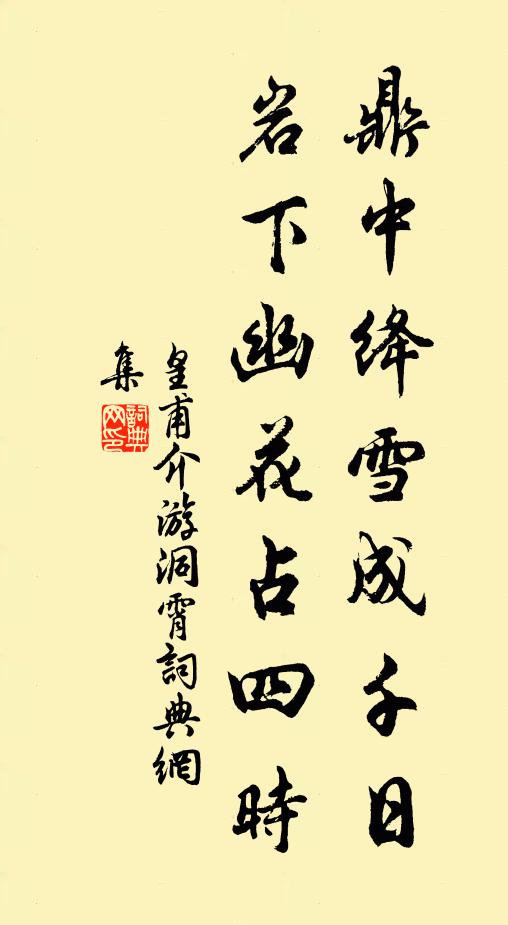 鼎中绛雪成千日
岩下幽花占四時
皇甫介游洞霄詞典網
集
詞典网印